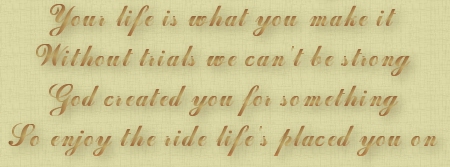 Your life is what you make it
Without trials we can't be strong
God created you for something
So enjoy the ride life's placed you on